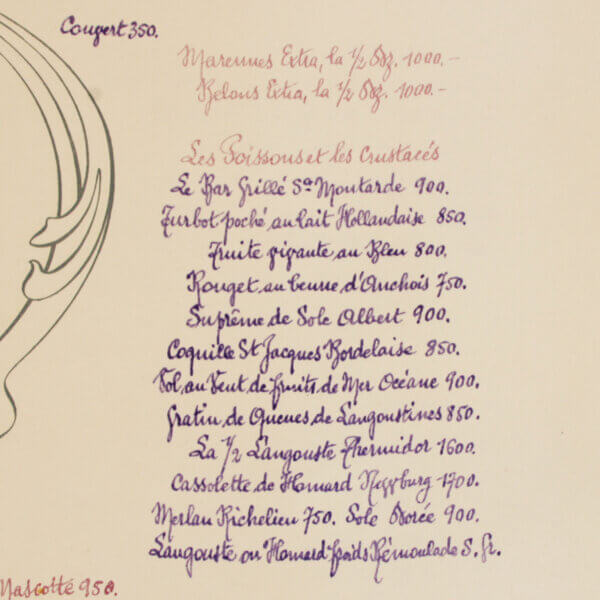 Couvert 350.
Marennes Extra, la 1/2 Dz. 1000.-
Belons Extra, la 1/2 Dz. 1000.-
Les Poissons et les Crustacés
Le Bar Grillé Sce Moutarde 900.
Turbot poché au lait Hollandaise 850.
Truite vivante au Bleu 800.
Rouget au beurre d'Anchois 750.
Suprême de Sole Albert 900.
Coquille St Jacques Bordelaise 850.
Vol au Vent de fruits de Mer Océane 900.
Gratin de Queues de Langoustines 850.
La 1/2 Langouste Thermidor 1600.
Cassolette de Homard Newburg 1700.
Merlan Richelieu 750. Sole Dorée 900.
Langouste ou Homard froids Rémoulade S. Gr.
Mascotte 950.